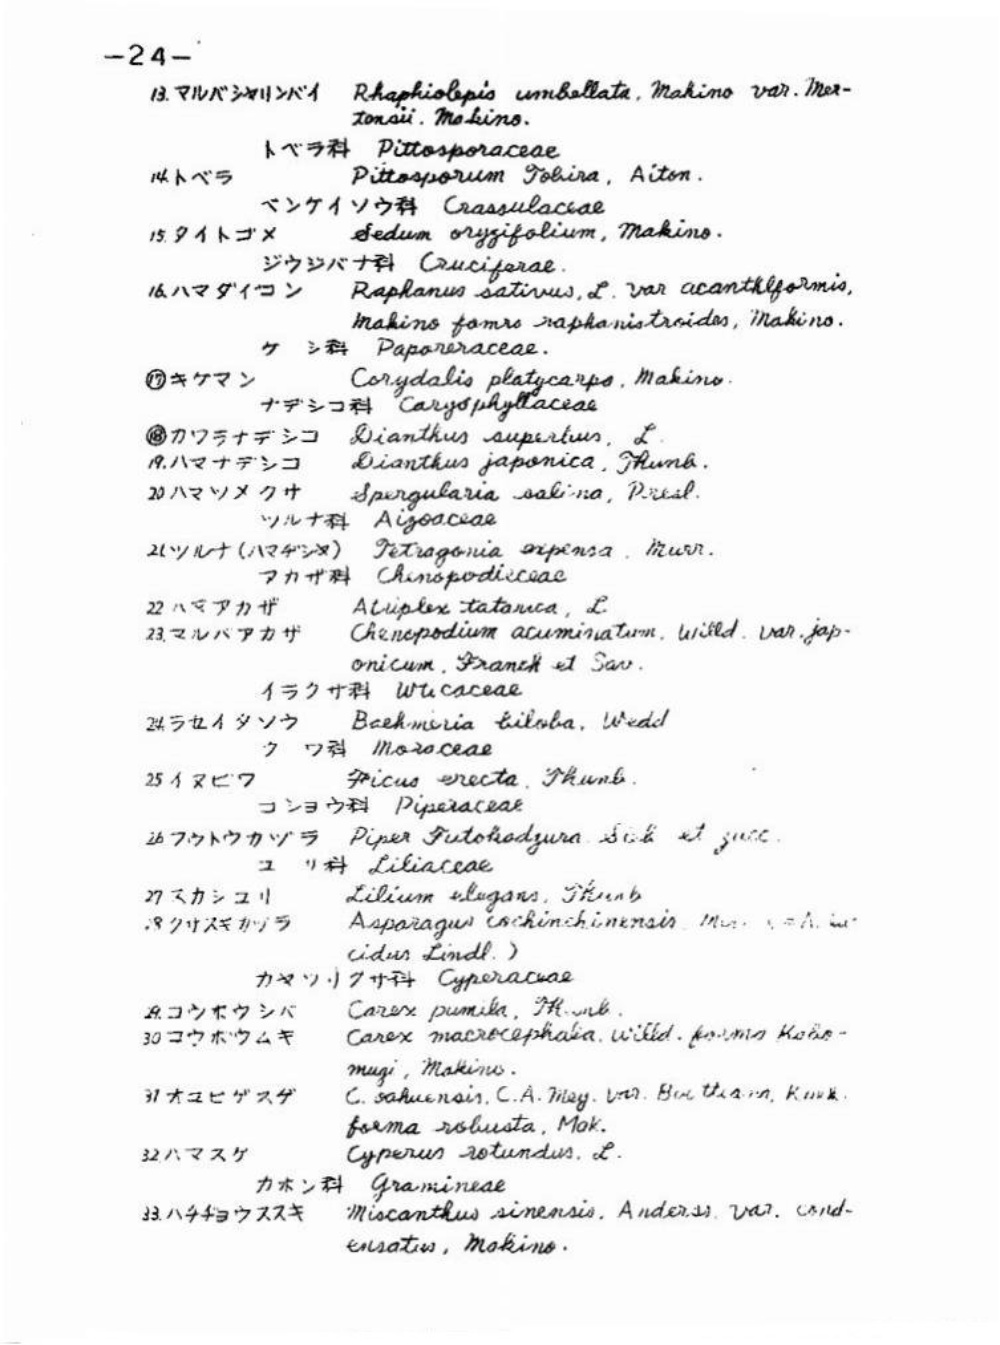 -24-
13. マルバシャリンバイ Rhaphiolepis umbellata, Makino var. Mer-
tensii. Makino.
トベラ科 Pittosporaceae
14. トベラ Pittosporum Tobira, Aiton.
ベンケイソウ科 Crassulaceae
15. タイトゴメ Sedum oryzifolium, Makino.
ジウジバナ科 Cruciferae.
16. ハマダイコン Raphanus sativus, L. var acanthiformis,
Makino raphanistroides, Makino.
ケシ科 Papareraceae.
⑰ キケマン Corydalis platycarpa, Makino.
ナデシコ科 Caryophyllaceae
⑱ カワラナデシコ Dianthus superbus, L.
19. ハマナデシコ Dianthus japonica, Thunb.
20 ハマツメクサ Spergularia salina, Presl.
ツルナ科 Aizoaceae
21 ツルナ(ハマヂシャ) Tetragonia expensa, Murr.
アカザ科 Chenopodiaceae
22 ハマアカザ Atriplex tatarica, L.
23. マルバアカザ Chenopodium acuminatum, Willd. var. jap-
onicum, Franch et Sav.
イラクサ科 Urticaceae
24. ラセイタソウ Boehmeria biloba, Wedd
クワ科 Moraceae
25 イヌビワ Ficus erecta, Thunb.
コショウ科 Piperaceae
26 フウトウカヅラ Piper Futokadzura Sieb et zucc.
ユリ科 Liliaceae
27 スカシユリ Lilium elegans, Thunb
28 クサスギカヅラ Asparagus cochinchinensis
cidus Lindl.)
カヤツリグサ科 Cyperaceae
29. コウボウシバ Carex pumila, Thunb.
30 コウボウムギ Carex macrocephala, Willd. forma Kobo-
mugi, Makino.
31 オユヒゲスゲ C. C.A. Mey. var. Kuek.
forma robusta, Mak.
32 ハマスゲ Cyperus rotundus, L.
カホン科 Gramineae
33. ハチヂョウススキ Miscanthus sinensis, Anderss. var. cond-
ensatus, Makino.